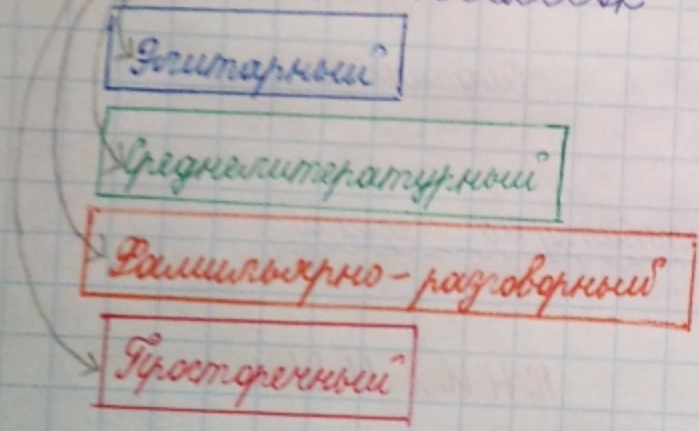 Элитарный
Среднелитературный
Фамильярно-разговорный
Просторечный